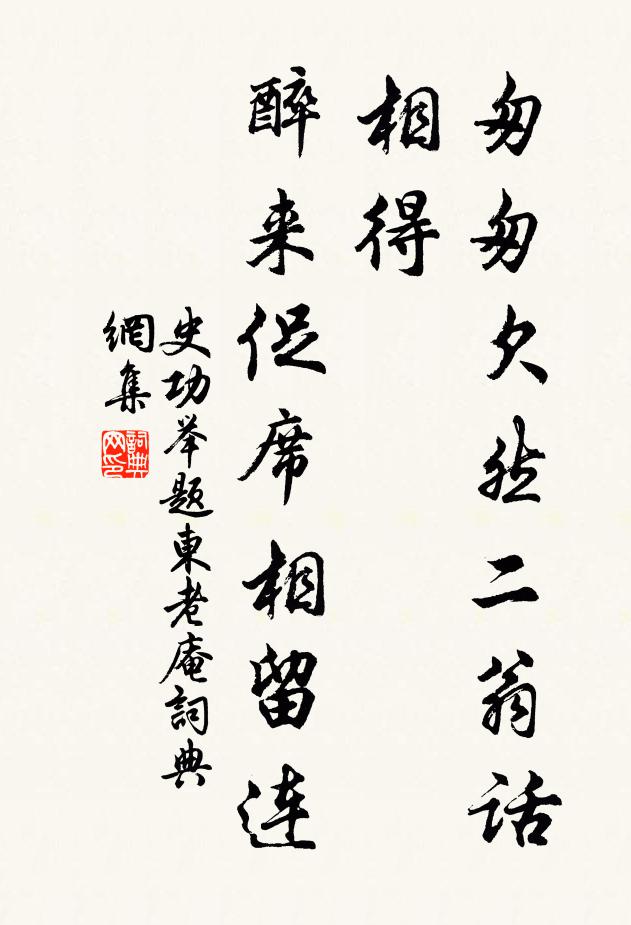 匆匆欠然二翁話
相得
醉来促席相留連
史功举题東老庵詞典
網集
詞典网印